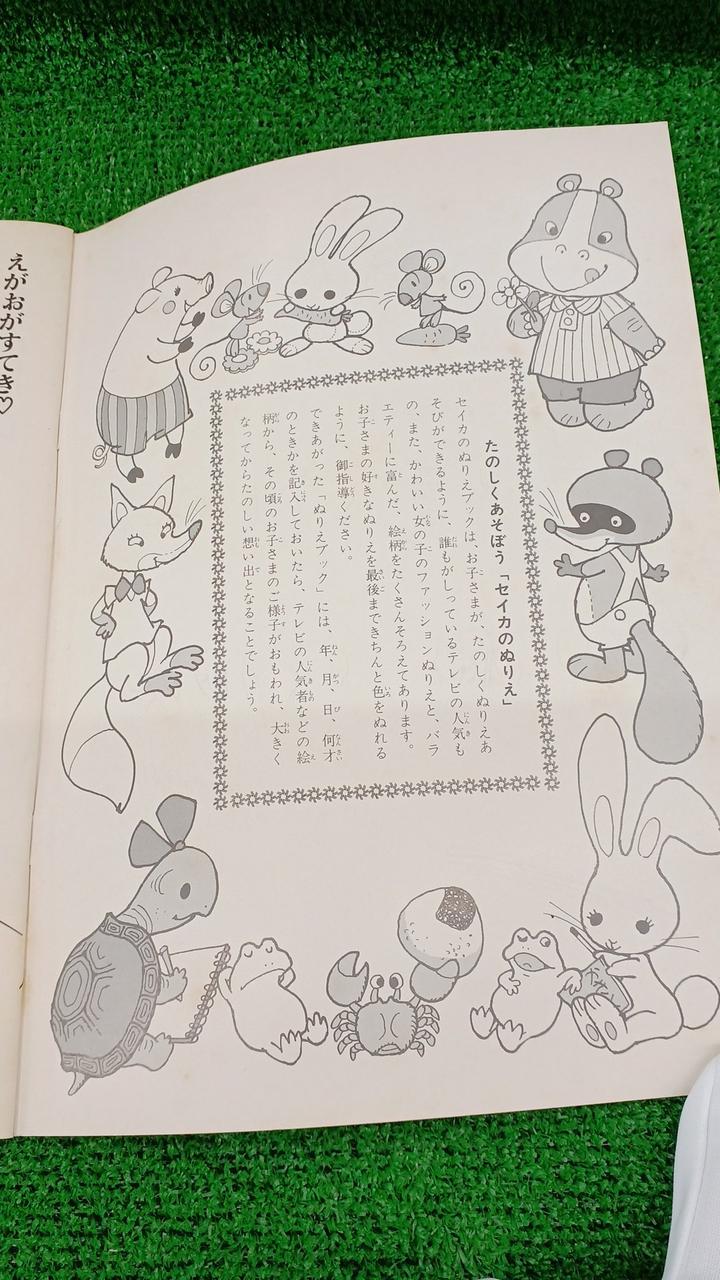 たのしくあそぼう「セイカのぬりえ」
セイカのぬりえブックは、お子さまが、たのしくぬりえあ
そびができるように、誰もがしっているテレビの人気も
の、また、かわいい女の子のファッションぬりえと、バラ
エティーに富んだ、絵柄をたくさんそろえてあります。
お子さまの好きなぬりえを最後まできちんと色をぬれる
ように、御指導ください。
できあがった「ぬりえブック」には、年、月、日、何才
のときかを記入しておいたら、テレビの人気者などの絵
柄から、その頃のお子さまのご様子がおもわれ、大きく
なってからたのしい想い出となることでしょう。
えがおがすてき♡